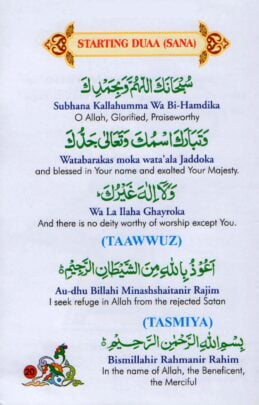 STARTING DUAA (SANA)
سُبْحَانَكَ اللّٰهُمَّ وَبِحَمْدِكَ
Subhana Kallahumma Wa Bi-Hamdika
O Allah, Glorified, Praiseworthy
وَتَبَارَكَ اسْمُكَ وَتَعَالٰى جَدُّكَ
Watabarakas moka wata'ala Jaddoka
and blessed in Your name and exalted Your Majesty.
وَلَا اِلٰهَ غَيْرُكَ
Wa La Ilaha Ghayroka
And there is no deity worthy of worship except You.
(TAAWWUZ)
اَعُوْذُ بِاللّٰهِ مِنَ الشَّيْطَانِ الرَّجِيْمِ
Au-dhu Billahi Minashshaitanir Rajim
I seek refuge in Allah from the rejected Satan
(TASMIYA)
بِسْمِ اللّٰهِ الرَّحْمٰنِ الرَّحِيْمِ
Bismillahir Rahmanir Rahim
In the name of Allah, the Beneficent,
the Merciful
20